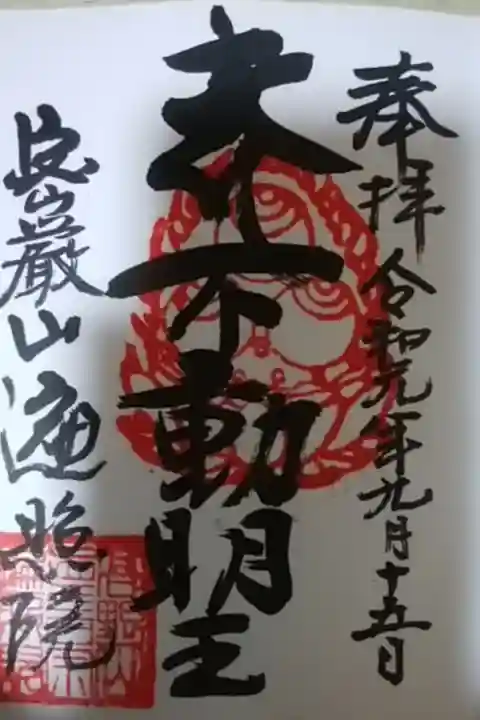 奉拝 令和元年九月十五日
赤不動明王
密厳山遍照院